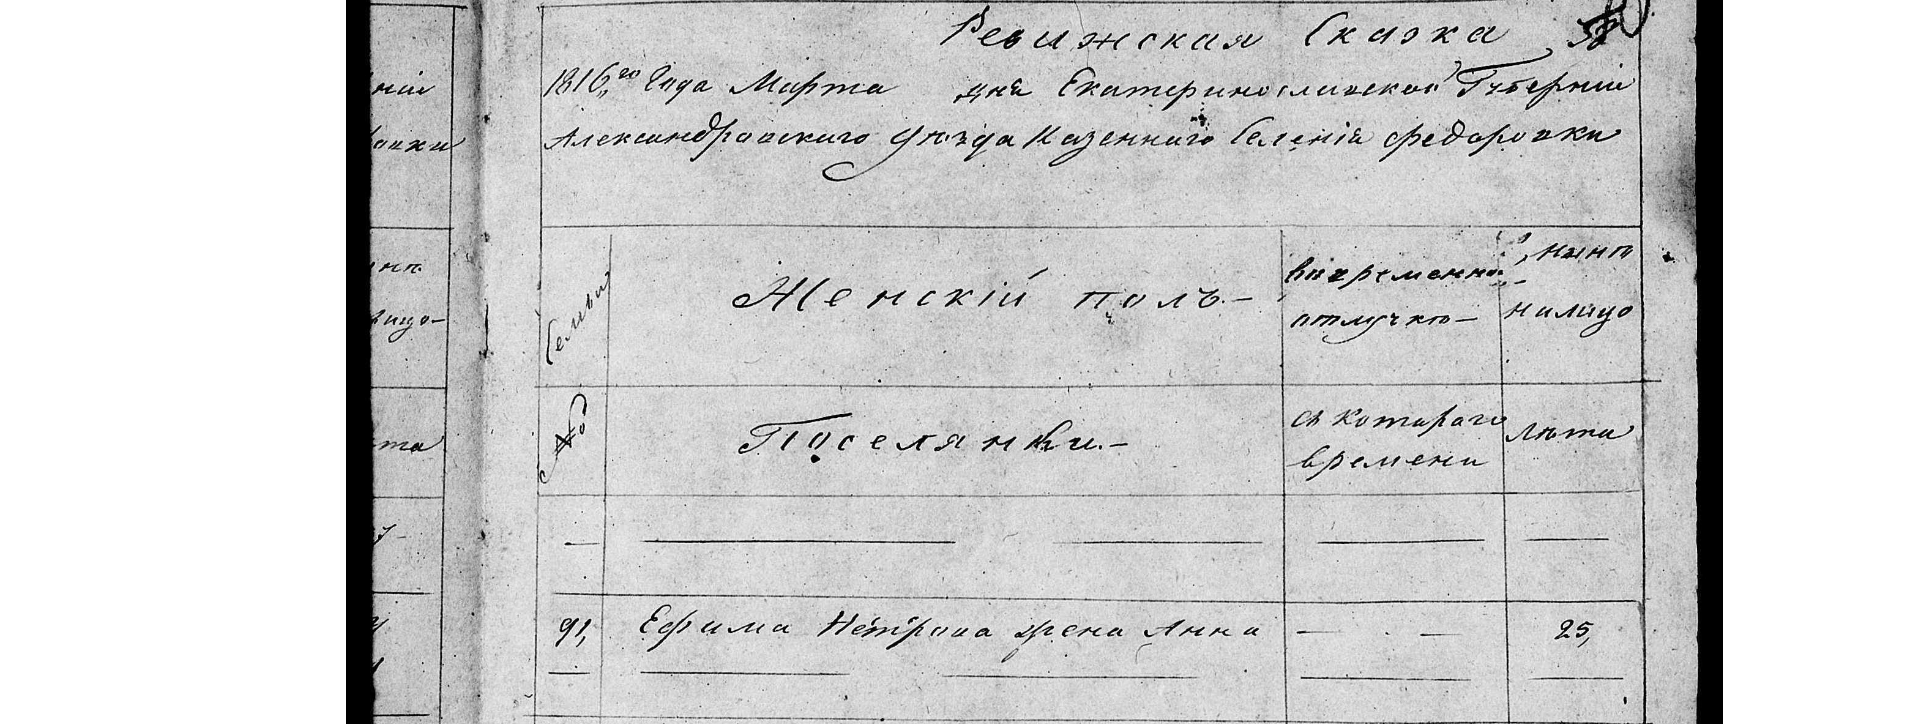 Ревижская Сказка
1816го Года Марта дня Екатеринославской Губерніи
Александровского Уѣзда Казенного Селенія Федоровки
ніи
овки
Семьи
Женскій полъ
во временной
отлучкѣ
нынѣ
налицо
лицо
№
Поселянки
съ котораго
времени
лѣта
ѣта
91, Ефима Петрова жена Анна — — 25,